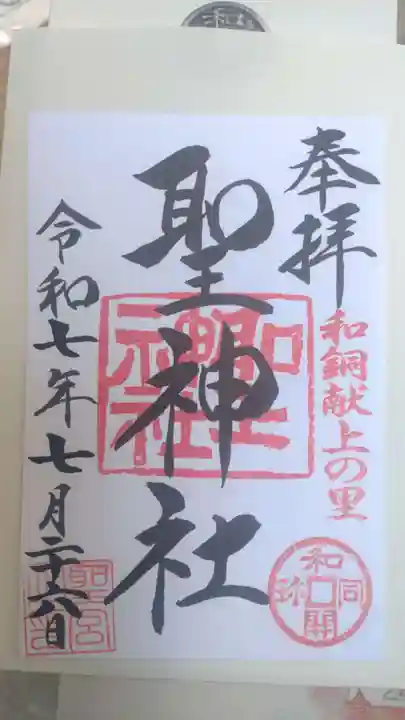 奉拝
和銅献上の里
聖神社
令和七年七月二十六日
和同開珎